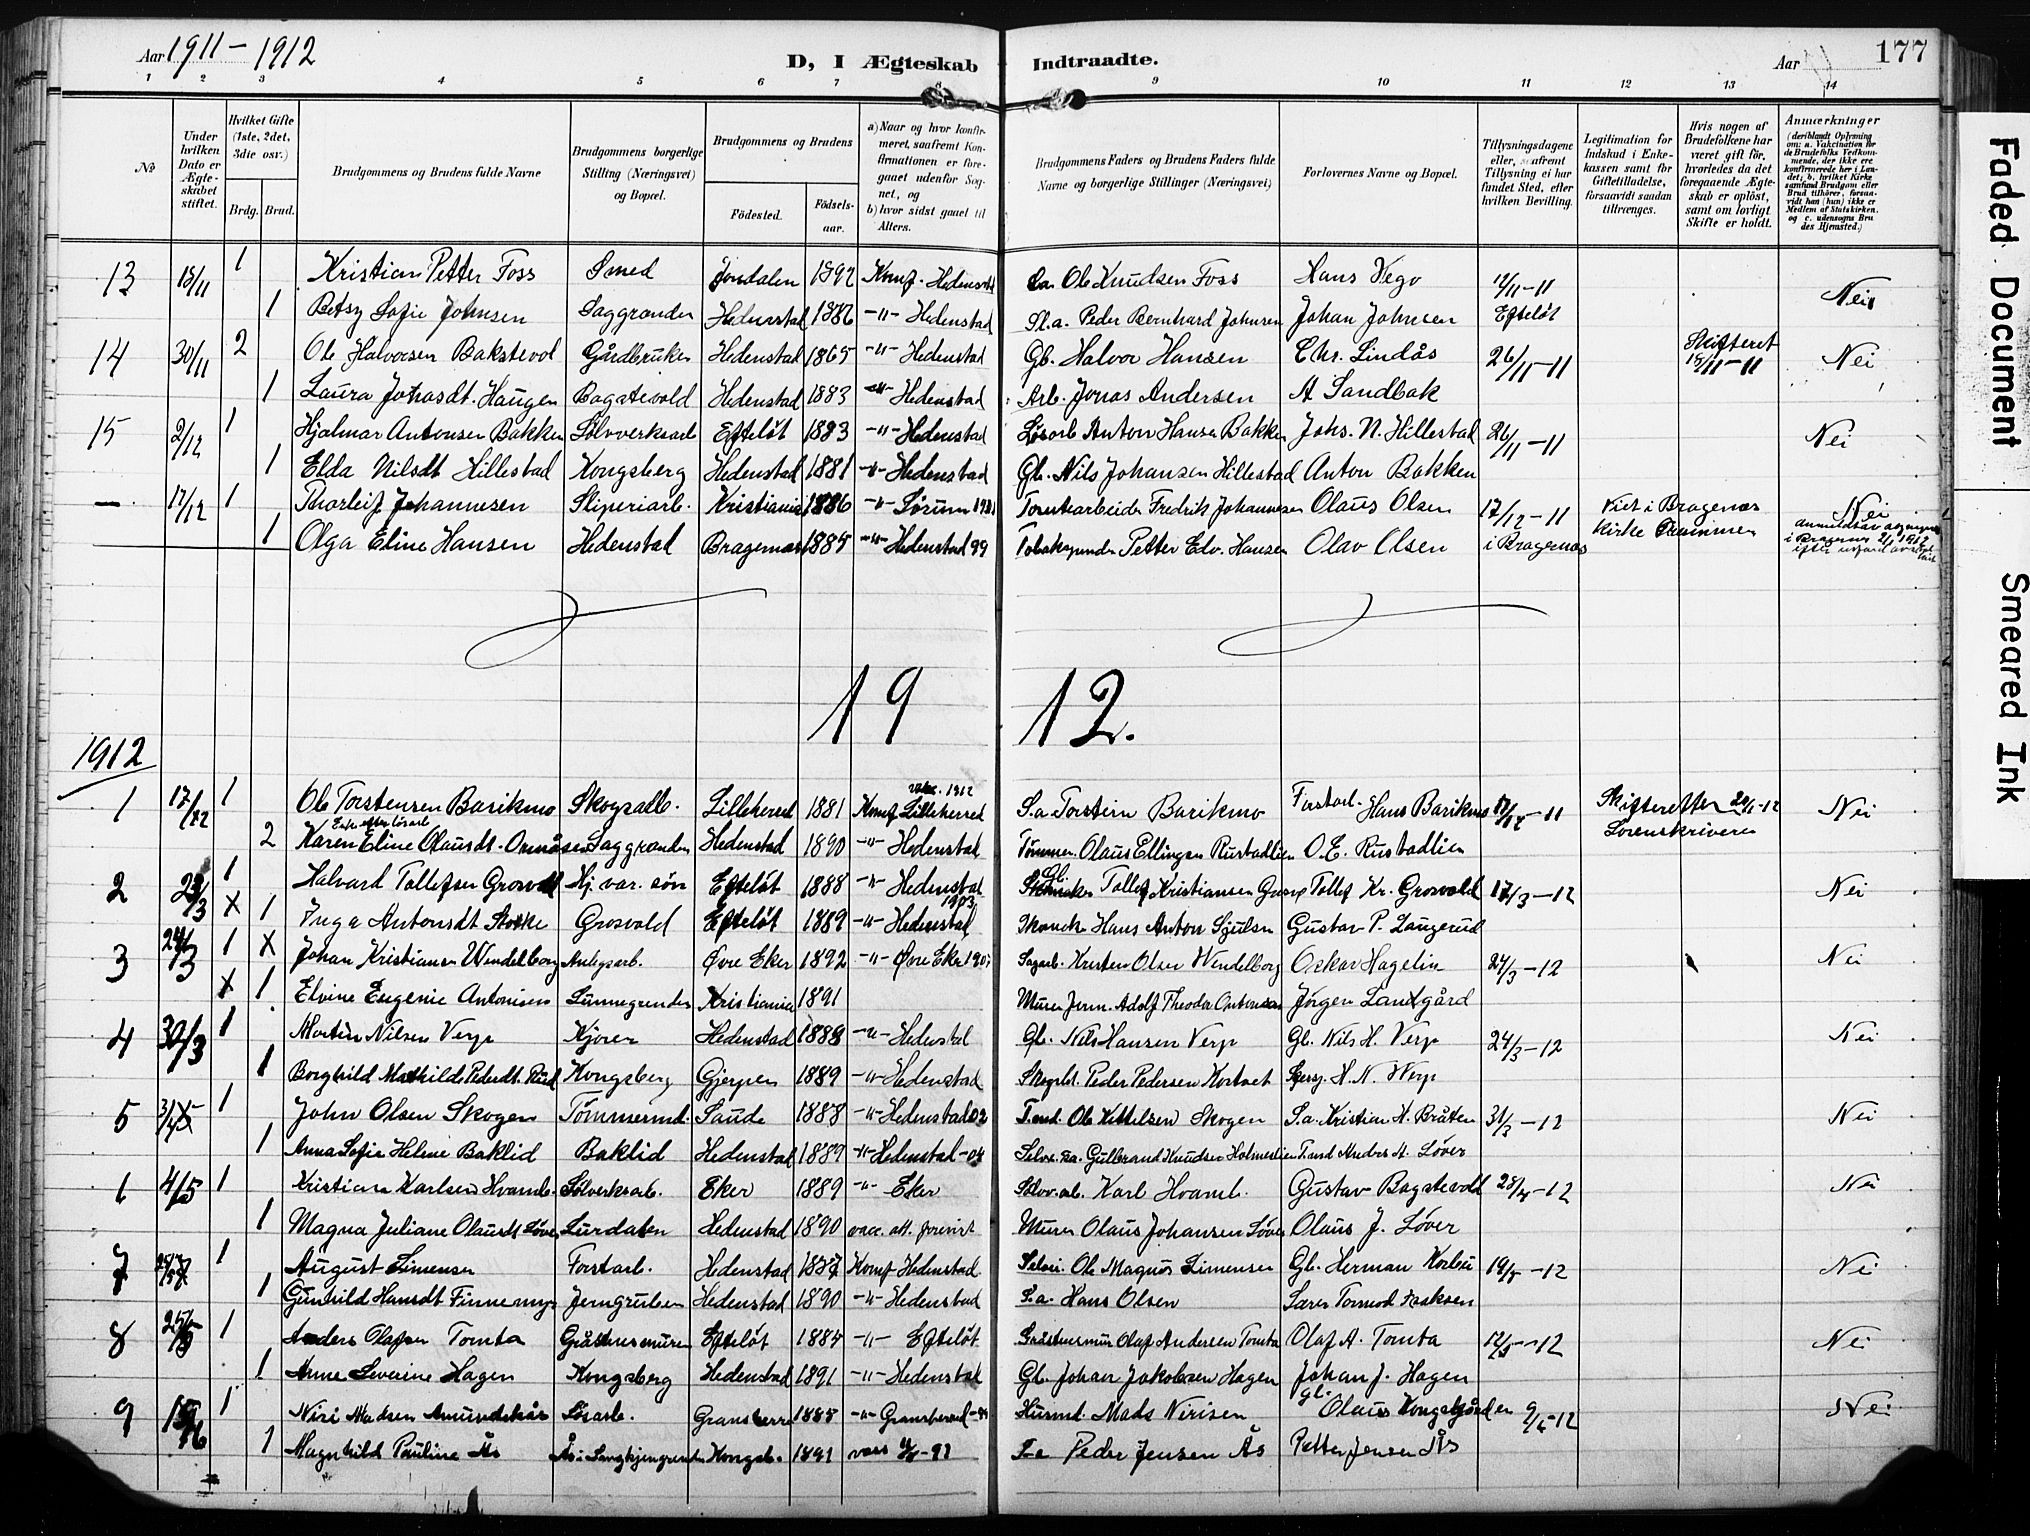 Aar 1911 – 1912 D, I Ægteskab Indtraadte. Aar 177
1 2 3 4 5 6 7 8 9 10 11 12 13 14
№
Under hvilken Dato er Ægteskabet stiftet.
Hvilket Gifte (1ste, 2det, 3die osv.)
Brdg. Brud.
Brudgommens og Brudens fulde Navne
Brudgommens borgerlige Stilling (Næringsvei) og Bopæl.
Brudgommens og Brudens
Födested. Födsels-aar.
a) Naar og hvor konfirmeret, saafremt Konfirmationen er foregaaet udenfor Sognet, og
b) hvor sidst gaaet til Alters.
Brudgommens Faders og Brudens Faders fulde Navne og borgerlige Stillinger (Næringsvei)
Forlovernes Navne og Bopæl.
Tillysningsdagene eller, saafremt Tillysning ei har fundet Sted, efter hvilken Bevilling.
Legitimation for Indskud i Enkekassen samt for Giftetilladelse, forsaavidt saadan tiltrænges.
Hvis nogen af Brudefolkene har været gift för, hvorledes da det foregaaende Ægteskab er oplöst, samt om lovligt Skifte er holdt.
Anmærkninger
(deriblandt Oplysning om: a. Vakcination for de Brudefolks Vedkommende, der ikke ere konfirmerede her i Landet; b. hvilket Kirkesamfund Brudgom eller Brud tilhörer, forsaavidt han (hun) ikke er Medlem af Statskirken, og c. udensogns Brudes Hjemsted.)
13 18/11 1 Kristian Petter Foss Smed Jondalen 1892 Konf. Hedenstad Ole Knudsen Foss Hans Vego 12/11–11 Nei
1 Betsy Sofie Johnsen Saggrenden Hedenstad 1886 –"– Hedenstad S.a. Peder Bernhard Johnsen Johan Johnsen Efteløt
14 30/11 2 Ole Halvorsen Bakstevol Gårdbruker Hedenstad 1865 –"– Hedenstad Gb. Halvor Hansen Chr. Lindås 26/11–11 Skifteret 15/11–11 Nei
1 Laura Jonasdt. Haugen Bagstevold Hedenstad 1883 –"– Hedenstad Arb. Jonas Andersen A. Sandbak
15 2/12 1 Hjalmar Antonsen Bakken Sølvverksarb. Efteløt 1883 –"– Hedenstad Løsarb Anton Hansen Bakken Johs. N. Hillestad 26/11–11 Nei
1 Elda Nilsdt Hillestad Kongsberg Hedenstad 1881 –"– Hedenstad Gb. Nils Johansen Hillestad Anton Bakken
— 17/12 1 Thorleif Johannesen Sliperiarb. Kristiania 1886 –"– Sørum 1901 Tomtearbeider Fredrik Johannesen Olaus Olsen 17/12–11 Viet i Bragenæs Nei
1 Olga Eline Hansen Hedenstad Bragernæs 1885 –"– Hedenstad 99 Petter Edv. Hansen Olav Olsen i Bragernæs Kirke Drammen
19 12.
1912
1 17/12 1 Ole Torstensen Barikmo Skogsarb. Lilleherred 1881 Konf. Lilleherred S.a. Torstein Barikmo Hans Barikmo 17/12–11 Skifteretten 24/1–12 Nei
2 Karen Eline Olausdt. Saggrenden Hedenstad 1890 –"– Hedenstad Tømmer. Olaus Ellingsen Rustadlien O. E. Rustadlien Sorenskriveren
2 23/3 1 Halvard Tollefsen Grosvold Hj. vær. søn Efteløt 1888 –"– Hedenstad Tollef Kristiansen Tollef Kr. Grosvold 17/3–12 Nei
X 1 Inga Antonsdt Grosvold Efteløt 1889 –"– Hedenstad 1903 Hans Anton Gustav P. Laugerud
3 24/3 1 X Johan Kristiansen Wendelborg Anlegsarb. Øvre Eker 1892 –"– Øvre Eker Sagarb. Kristen Olsen Wendelborg Oskar Hagelin 24/3–12 Nei
X 1 Elvine Eugenie Antonisen Sunnegrenden Kristiania 1891 Adolf Theodor Antonisen Jørgen Landgård
4 30/3 1 Martin Nilsen Verp Kjører Hedenstad 1888 –"– Hedenstad Gb. Nils Hansen Verp Gb. Nils H. Verp 24/3–12 Nei
1 Borghild Mathilde Pedersdt. Rud Kongsberg Gjerpen 1889 –"– Hedenstad Peder Pedersen H. N. Verp
5 1 John Olsen Skogen Tømmermd. Saude 1888 –"– Hedenstad 02 Ole Kittelsen Skogen S.a. Kristian H. Bråten 31/3–12 Nei
1 Anna Sofie Helene Baklid Baklid Hedenstad 1889 –"– Hedenstad –04 Gulbrand Knudsen Holmeslien Anders A. Løver
1 4/5 1 Kristian Karlsen Hvamb. Sølvverksarb. Eker 1889 –"– Eker Sølv.arb. Karl Hvamb. Gustav Bagstevold 28/4–12 Nei
1 Magna Juliane Olausdt Løver Lurdalen Hedenstad 1890 vacc. att. forevist Murer Olaus Johansen Løver Olaus J. Løver
7 1 August Simensen Forstarb. Hedenstad 1887 Konf Hedenstad Ole Magnus Simensen Gb. Herman Korbu 19/5–12 Nei
1 Gunhild Hansdt Finnemyr Jerngruben Hedenstad 1890 –"– Hedenstad S.a. Hans Olsen
8 25/5 1 Anders Olafsen Tomta Gråstensmurer Efteløt 1884 –"– Efteløt Gråstensmur Olaf Andersen Tomta Olaf A. Tomta 12/5–12 Nei
1 Anne Severine Hagen Kongsberg Hedenstad 1891 –"– Hedenstad Gb. Johan Jakobsen Hagen Johan J. Hagen
9 1 Niri Madsen Løsarb. Gransherred 1885 –"– Gransherred Husmd. Mads Nirisen Gb. Olaus Kongsgården 9/6–12 Nei
1 Magnhild Pauline Ås Ås i Kongsb. 1891 Peder Jensen Ås Petter Jensen Ås
Faded Document
Smeared Ink